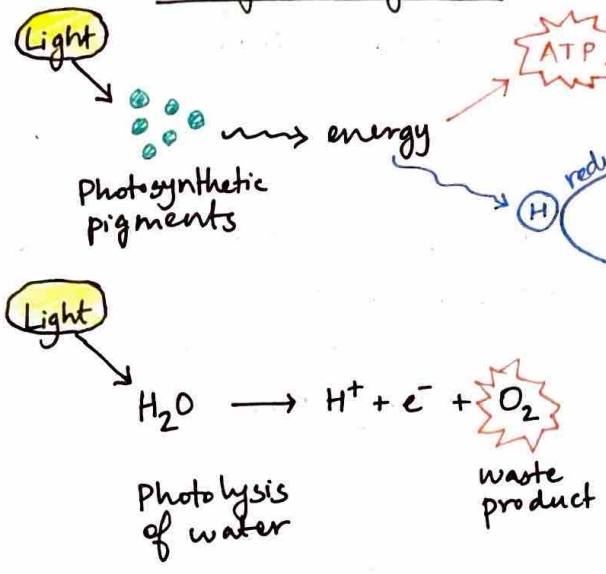 Light
ATP
energy
Photosynthetic
pigments
H
Light
H₂O → H⁺ + e⁻ + O₂
Photolysis
of water
waste
product